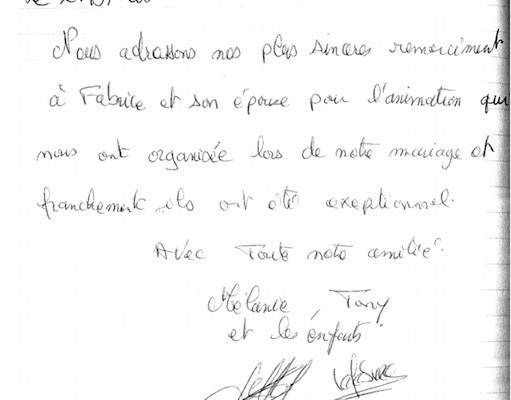 Nous adrassons nos plus sinceres remerciment
à Fabrice et son épouse pour l'animation qui
nous ont organisée lors de notre mariage et
franchement ils ont été exeptionnel.
Avec Toute notre amitié.
Mélanie, Tony
et les enfants